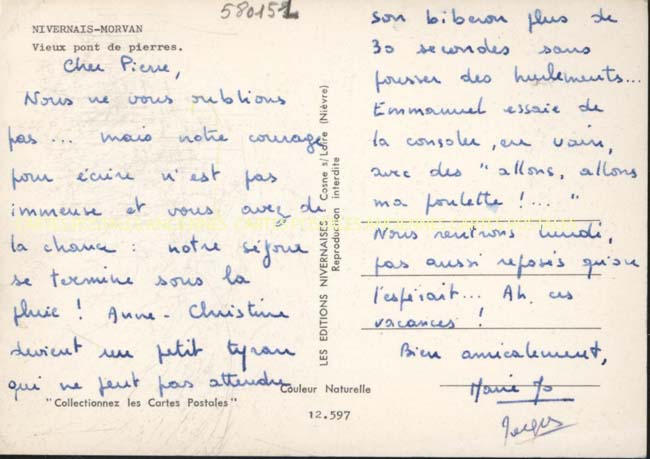 580151
NIVERNAIS-MORVAN
Vieux pont de pierres.
Cher Pierre,
Nous ne vous oublions
pas... mais notre courage
pour écrire n'est pas
immense et vous avez de
la chance : notre séjour
se termine sous la
pluie ! Anne-Christine
devient un petit tyran
qui ne peut pas attendre
"Collectionnez les Cartes Postales"
LES EDITIONS NIVERNAISES Cosne s/Loire (Nièvre)
Reproduction interdite
Couleur Naturelle
12.597
son biberon plus de
30 secondes sans
pousser des hurlements...
Emmanuel essaie de
la consoler, en vain,
avec des "allons, allons
ma poulette !... "
Nous rentrons lundi,
pas aussi reposés qu'on
l'espérait... Ah, ces
vacances !
Bien amicalement,
Marie Jo